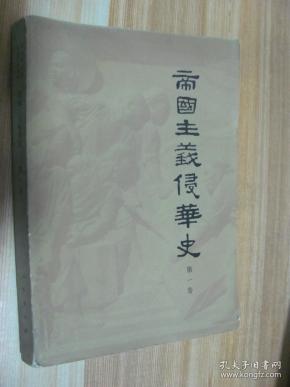 帝國主義侵華史
第一卷
孔夫子旧书网